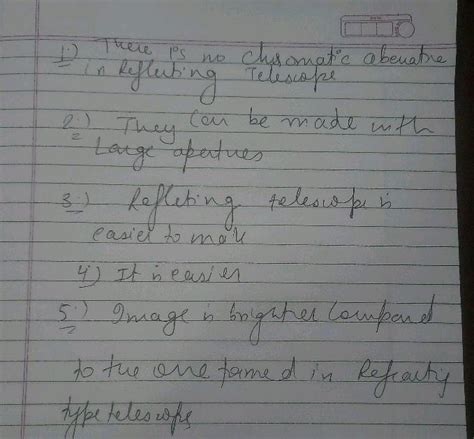 1.) There is no chromatic aberratne
in Reflecting Telescope
2.) They Can be made with
Large apertures
3.) Reflecting telescope is
easier to mak
4) It is easier
5.) Image is brighter Compared
to the one formed in Refracting
type telescope